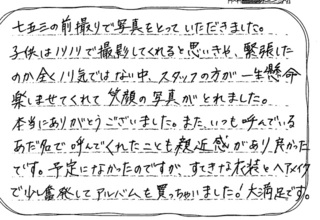 七五三の前撮りで写真をとっていただきました。
子供はノリノリで撮影してくれると思いきや、緊張した
のか全くノリ気ではない中、スタッフの方が一生懸命
楽しませてくれて笑顔の写真がとれました。
本当にありがとうございました。また、いつも呼んでいる
あだ名で呼んでくれたことも親近感があり良かった
です。予定になかったのですが、すてきな衣装とヘアメイク
で少し奮発してアルバムを買っちゃいました!大満足です。